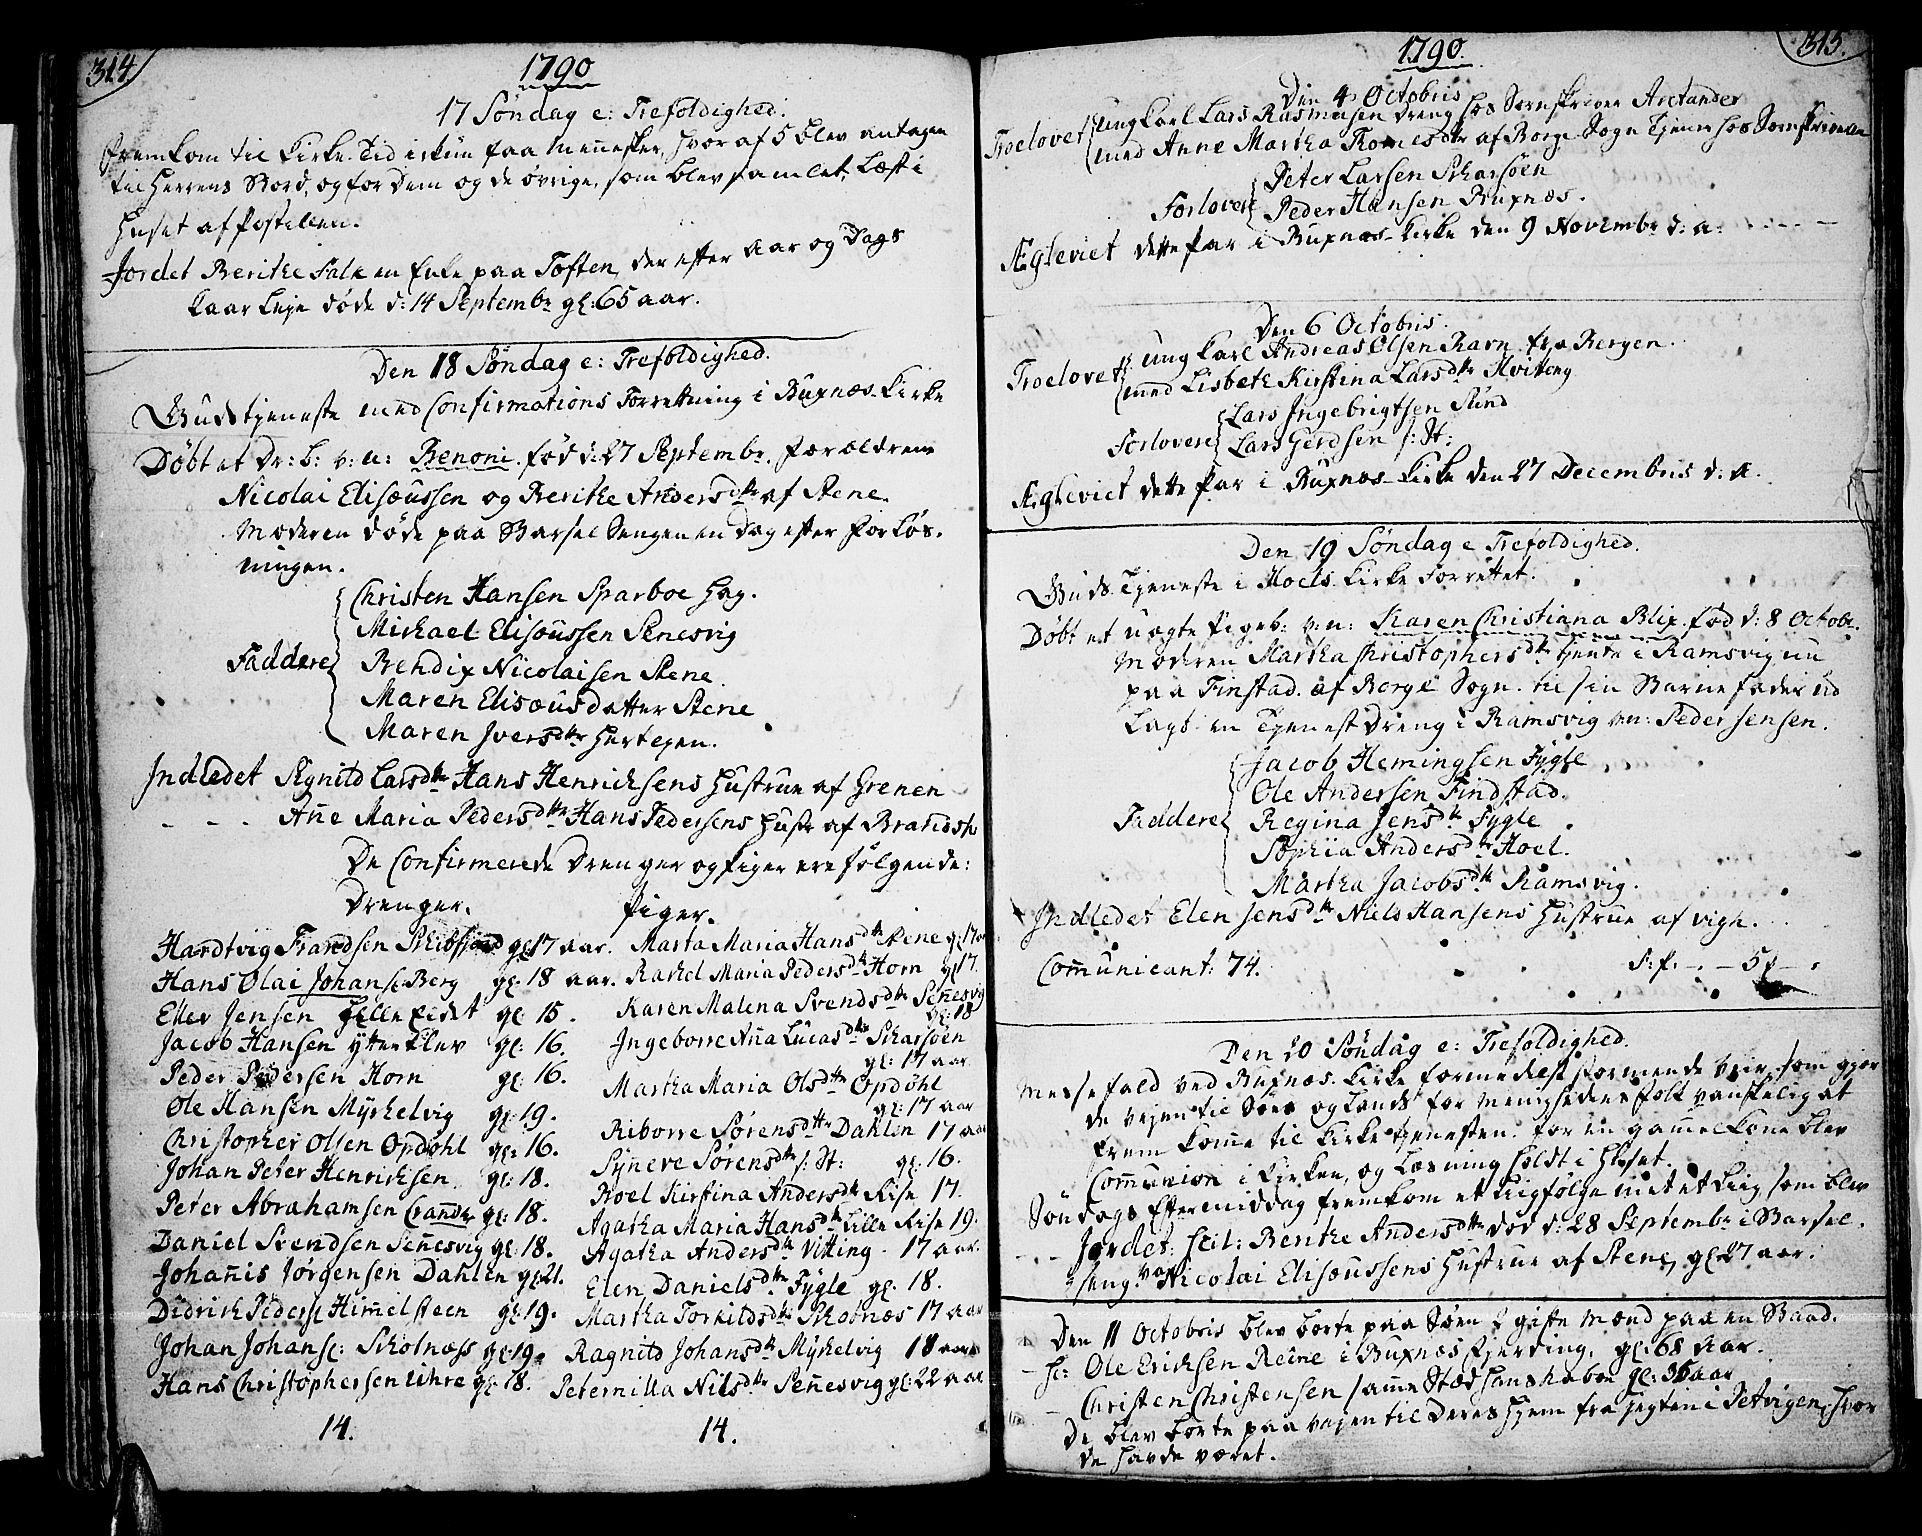 314
1790
17 Søndag e: Trefoldighed.
Fremkom til Kirke-Tid iskun faa Mennesker, hvoraf 5 blev antagen
til Herrens Bord, og for Dem og de øvrige, som blev samlet, Læst i
Huset af Postillen.
Jordet Berithe Falk en Enke paa Toften, der efter Aar og Dags
Leje døde d: 14 Septembr gl: 65 aar.
Den 18 Søndag e: Trefoldighed.
Gudstjeneste med Confirmations Forretning i Buxnæs-Kirke
Døbt et Dr: b: v: n: Benoni. fød d: 27 Septembr. Forældrene
Nicolai Elisæussen og Berithe Andersdtr af Stene.
Moderen døde paa Barsel Sengen en Dag efter Forløs-
ningen.
Christen Hansen Sparboe Hag.
Michael Elisæussen Senesvig
Faddere Bendix Nicolaisen Stene
Maren Elisæusdatter Stene
Maren Iversdtr Hertegen.
Indledet Sygnild Larsdtr Hans Henrichsens Hustrue af Grenen
- - - Añe Maria Pedersdtr Hans Pedersens Hustr af Brandsh
De Confirmerede Drenger og Piger ere følgende:
Drenger. Piger.
Hardtvig Frandsen Skibfiord gl: 17 aar. Marta Maria Hansdtr Stene gl: 17
Hans Olai Johans: Berg gl: 18 aar. Rachel Maria Pedersdtr Horn gl 17
Eller Jensen Helle Eidet gl: 15. Karen Malena Svendsdtr Senesvig
gl: 18
Jacob Hansen ytterklev gl: 16. Ingeborre Aña Lucasdtr Scharsöen
gl: 17 aar
Peder Pedersen Horn gl: 16. Martha Maria Olsdtr Opdøhl
gl: 17 aar
Ole Hansen Myrhelvig gl: 19. Riborre Sørensdtr Dahlen 17 aar
Christopher Olsen Opdøhl gl: 16. Syneve Sørensdtr s: St: gl: 16.
Johan Peter Henrichsen gl: 18. Roel Kirstina Andersdtr Rise 17.
Peter Abrahamsen Crandh gl: 18. Agatha Maria Hansdtr Lille Rise 19.
Daniel Svendsen Señesvig gl: 18. Agatha Andersdtr Vitting. 17 aar.
Johañis Jørgensen Dahlen gl: 21. Elen Danielsdtr Fygle gl: 18.
Didrich Peders: Him̃elsteen gl: 19. Martha Torkildsdtr Skotnæs 17 aar
Johan Johans: Skolnæss gl: 19. Ragnild Johansdtr Myhelvig 18 aar
Hans Christophersen Lihre gl: 18. Peternilla Nilsdtr Señesvig gl: 22 aar
14. 14.
315.
1790.
Den 4 Octobris
Troelovet ung Karl Lars Rasmusen Dreng hos Sornskriver Arctander
med Anne Martha Thomesdtr af Borge Sogn Tjener hos Sornskriveren
Peter Larsen Scharsöen
Forlovere Peder Hansen Buxnæs.
Ægteviet dette Par i Buxnæs-Kirke den 9 Novembr d: a:
Den 6 Octobris.
Troelovet ung Karl Andreas Olsen Ravn fra Bergen
med Lisbeth Kirstina Larsdtr Hviteng
Lars Ingebrigtsen Sund
Forlovere Lars Gerdsen s: St:
Ægteviet dette Par i Buxnæs-Kirke den 27 Decembris d: a.
Den 19 Søndag e Trefoldighed.
Guds Tjeneste i Hoels Kirke Forrettet.
Døbt et uægte Pigeb: v: n: Karen Christiana Blix. fød d: 8 Octobr.
Moderen Martha Christophersdtr tjente i Ramsvig nu
paa Finstad. af Borge Sogn. til sin Barnefader ud
Lagt en Tjenestdreng i Ramsvig v: n: Peder Jensen.
Jacob Hemingsen Fygle
Ole Andersen Findstad.
Faddere Regina Jensdtr Fygle
Sophia Andersdtr Hoel.
Martha Jacobsdtr Ramsvig.
Indledet Elen Jensdtr Niels Hansens Hustrue af vigh.
Com̃unicant: 74.
Den 20 Søndag e: Trefoldighed.
Messefald ved Buxnæs Kirke formedelst stormende Veir, som gjør
de Vejen til Søes og Lands for Menighedens Folk vanskelig at
Frem kom̃e til Kirketjenesten. for en gam̃el Kone blev
Com̃union i Kirken, og Læsning holdt i Huset.
Søndags Eftermiddag fremkom et Liigfølge med et Liig, som blev
- - Jordet: scil: Berithe Andersdtr død d: 28 Septembr i Barsel-
seng. var Nicolai Elisæussens Hustrue af Stene, gl: 27 aar.
Den 11 Octobris blev borte paa Søen 2 gifte Mænd paa en Baad.
sc: Ole Erichsen Reine i Buxnæs Fjerding. gl: 68 Aar.
- Christen Christensen sam̃e Sted gl: 36 aar
De blev borte paa Vejen til Deres Hjem fra Jegten i Petvigen, hvor
de havde været.